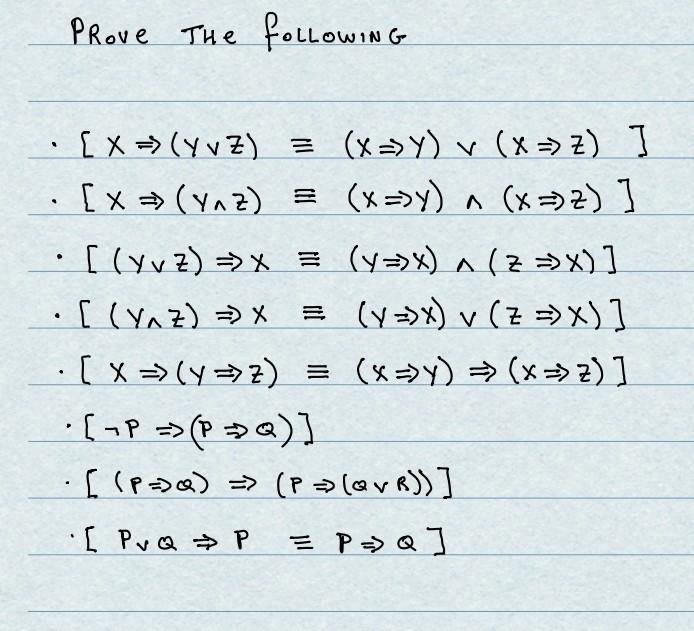 PRove THe fOLLOWING
· [ X ⇒ (Y ∨ Z) ≡ (X ⇒ Y) ∨ (X ⇒ Z) ]
· [ X ⇒ (Y ∧ Z) ≡ (X ⇒ Y) ∧ (X ⇒ Z) ]
· [ (Y ∨ Z) ⇒ X ≡ (Y ⇒ X) ∧ (Z ⇒ X) ]
· [ (Y ∧ Z) ⇒ X ≡ (Y ⇒ X) ∨ (Z ⇒ X) ]
· [ X ⇒ (Y ⇒ Z) ≡ (X ⇒ Y) ⇒ (X ⇒ Z) ]
· [ ¬P ⇒ (P ⇒ Q) ]
· [ (P ⇒ Q) ⇒ (P ⇒ (Q ∨ R)) ]
· [ P ∨ Q ⇒ P ≡ P ⇒ Q ]